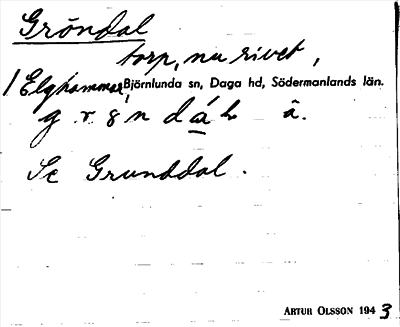 Gröndal
torp, nu rivet,
/ Elghammar, Björnlunda sn, Daga hd, Södermanlands län.
Se Grunddal.
ARTUR OLSSON 1943